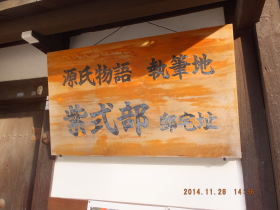 源氏物語 執筆地
紫式部 邸宅址
2014.11.28 14: